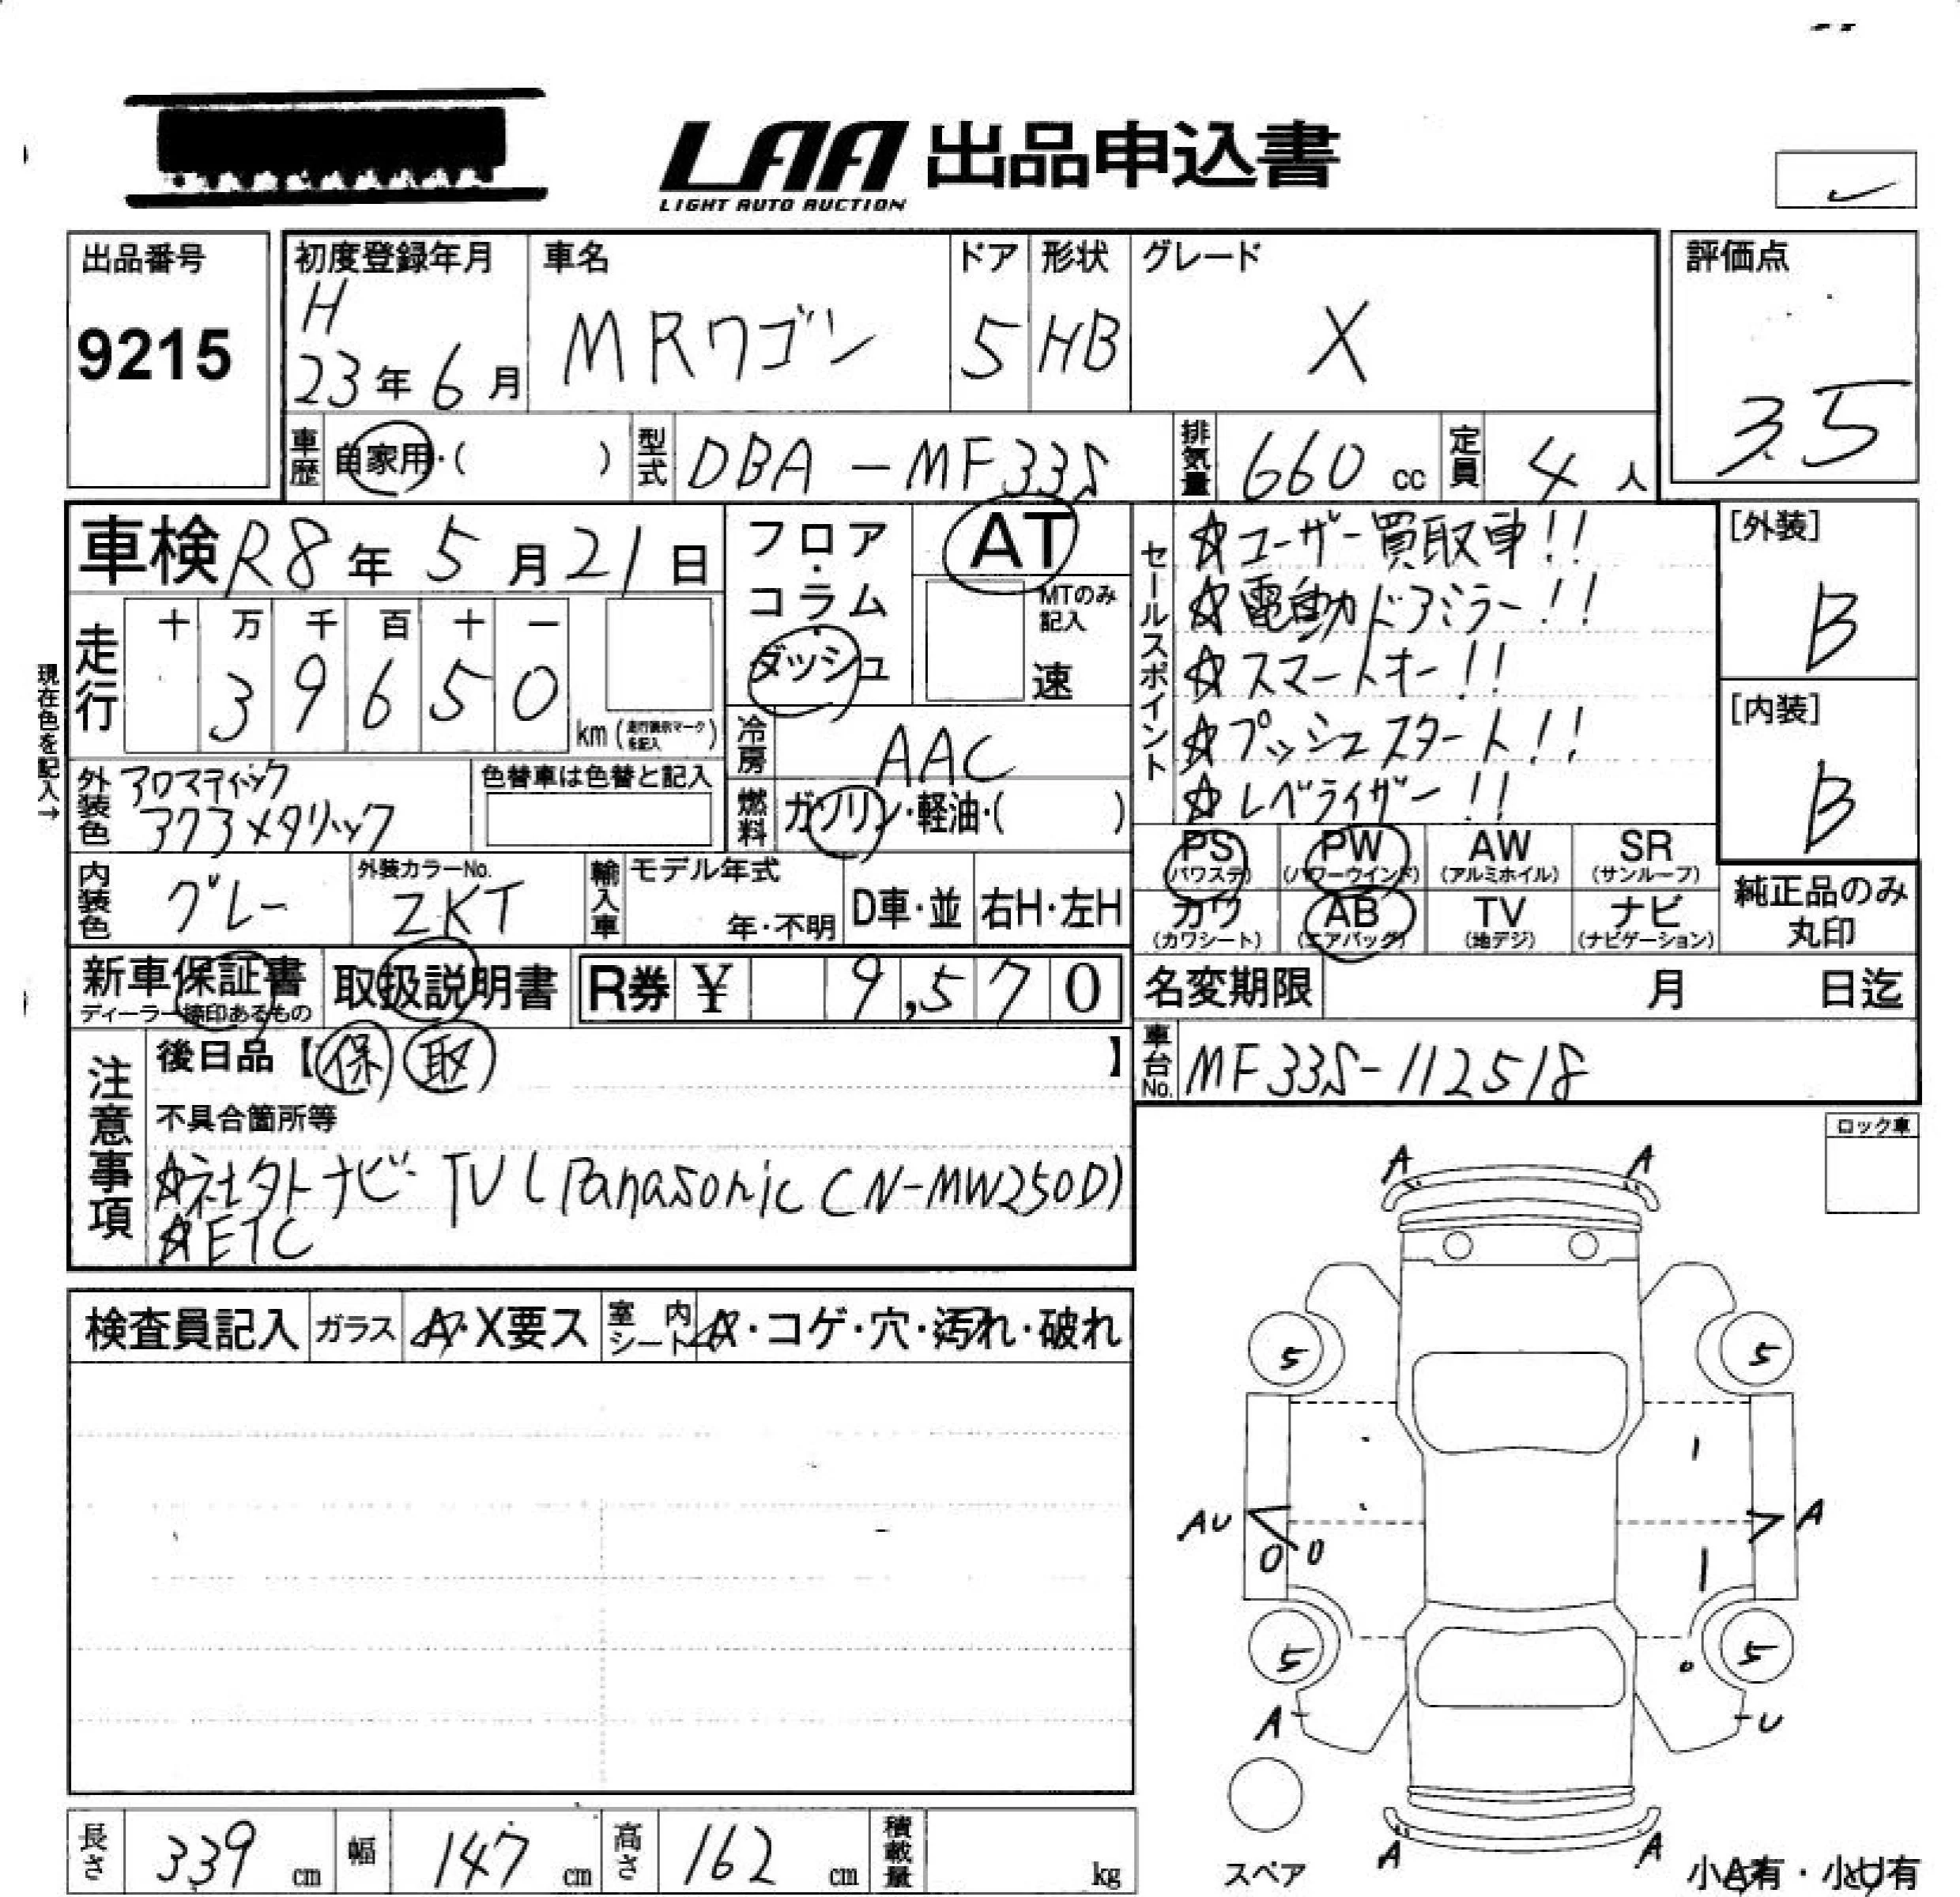 LAA 出品申込書
LIGHT AUTO AUCTION
出品番号
9215
初度登録年月
H
23年6月
車名
MRワゴン
ドア
5
形状
HB
グレード
X
評価点
3.5
車歴
自家用・( )
型式
DBA-MF33S
排気量
660 cc
定員
4 人
車検 R8年 5月 21日
フロア・コラム・ダッシュ
AT
MTのみ記入
速
現在色を記入→
走行
十 万 千 百 十 一
3 9 6 5 0
km (走行表示マークを記入)
冷房
AAC
燃料
ガソリン・軽油・( )
外装色
アロマティック
アクアメタリック
色替車は色替と記入
内装色
グレー
外装カラーNo.
ZKT
輸入車
モデル年式
年・不明
D車・並
右H・左H
セールスポイント
☆ユーザー買取車!!
☆電動ドアミラー!!
☆スマートキー!!
☆プッシュスタート!!
☆レベライザー!!
[外装]
B
[内装]
B
PS (パワステ)
PW (パワーウインド)
AW (アルミホイル)
SR (サンルーフ)
カワ (カワシート)
AB (エアバッグ)
TV (地デジ)
ナビ (ナビゲーション)
純正品のみ
丸印
新車保証書
ディーラー捺印あるもの
取扱説明書
R券 ¥ 9,570
名変期限 月 日迄
車台No.
MF33S-112518
注意事項
後日品【保 取】
不具合箇所等
☆社外ナビ TV (Panasonic CN-MW250D)
☆ETC
ロック車
検査員記入
ガラス
A・X要ス
室内シート
A・コゲ・穴・汚れ・破れ
A A
5 5
AU A
5 5
A U
スペア
A A
小A有・小U有
長さ 339 cm
幅 147 cm
高さ 162 cm
積載量 kg